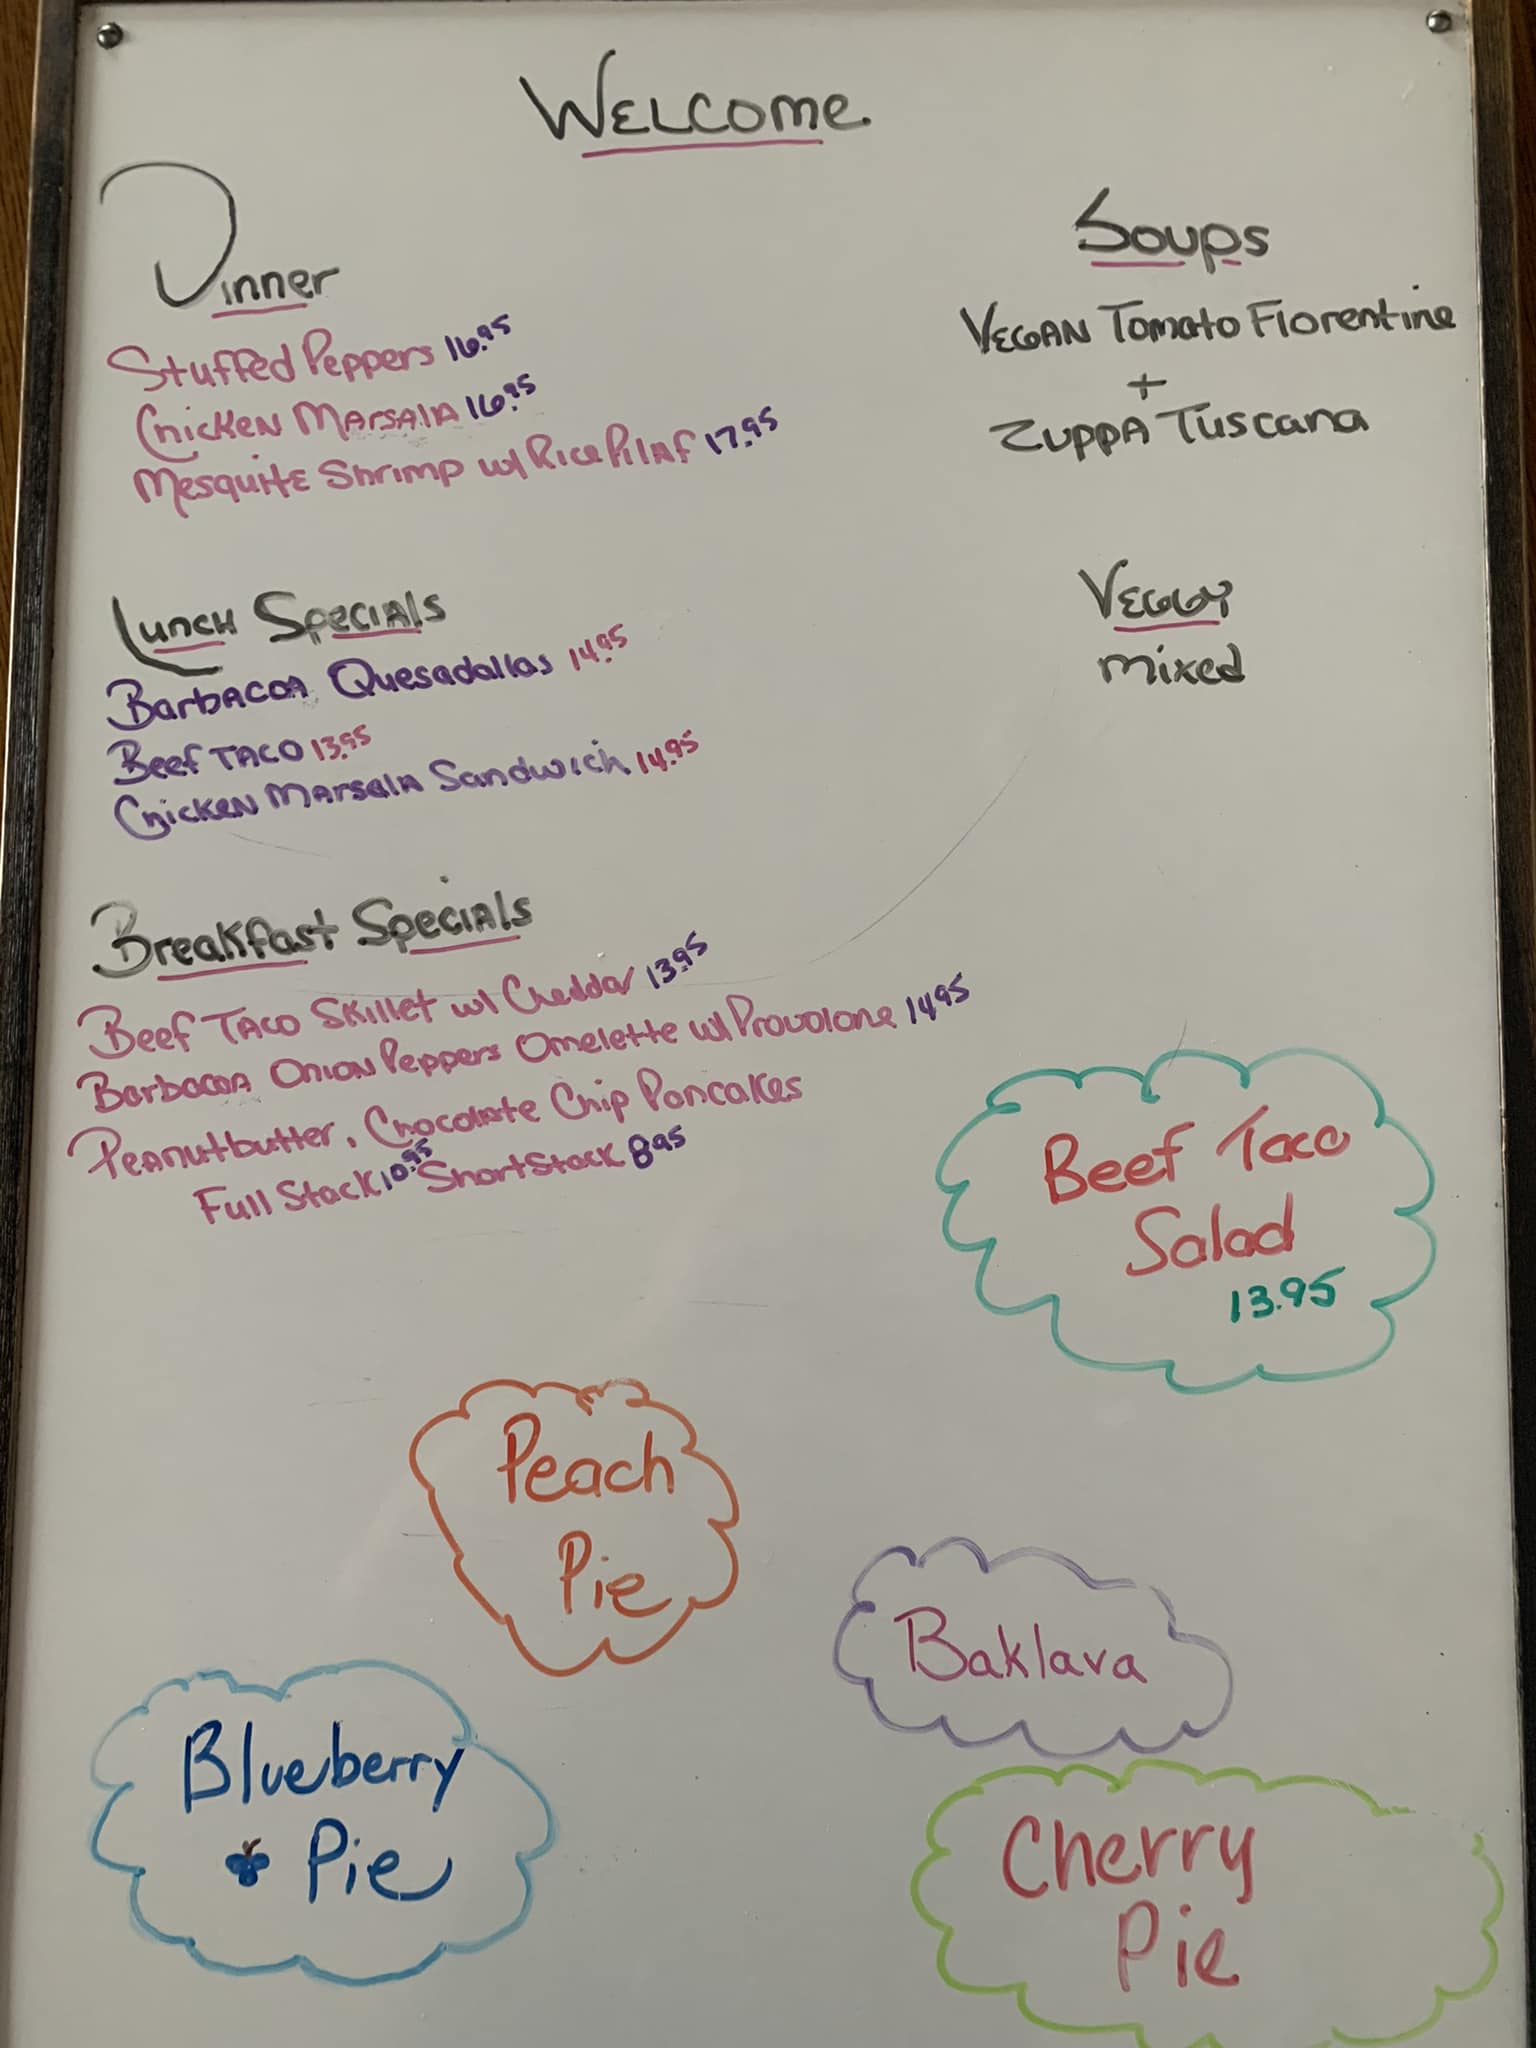 WELCOME
Dinner
Stuffed Peppers 16.95
Chicken Marsala 16.95
Mesquite Shrimp w/ Rice Pilaf 17.95
Lunch Specials
Barbacoa Quesadallas 14.95
Beef Taco 13.95
Chicken Marsala Sandwich 14.95
Breakfast Specials
Beef Taco Skillet w/ Cheddar 13.95
Barbacoa Onion Peppers Omelette w/ Provolone 14.95
Peanutbutter, Chocolate Chip Pancakes
Full Stack 10.95 Short Stack 8.95
Soups
Vegan Tomato Florentine
+
Zuppa Tuscana
Veggy
Mixed
Beef Taco
Salad
13.95
Peach
Pie
Baklava
Blueberry
Pie
Cherry
Pie